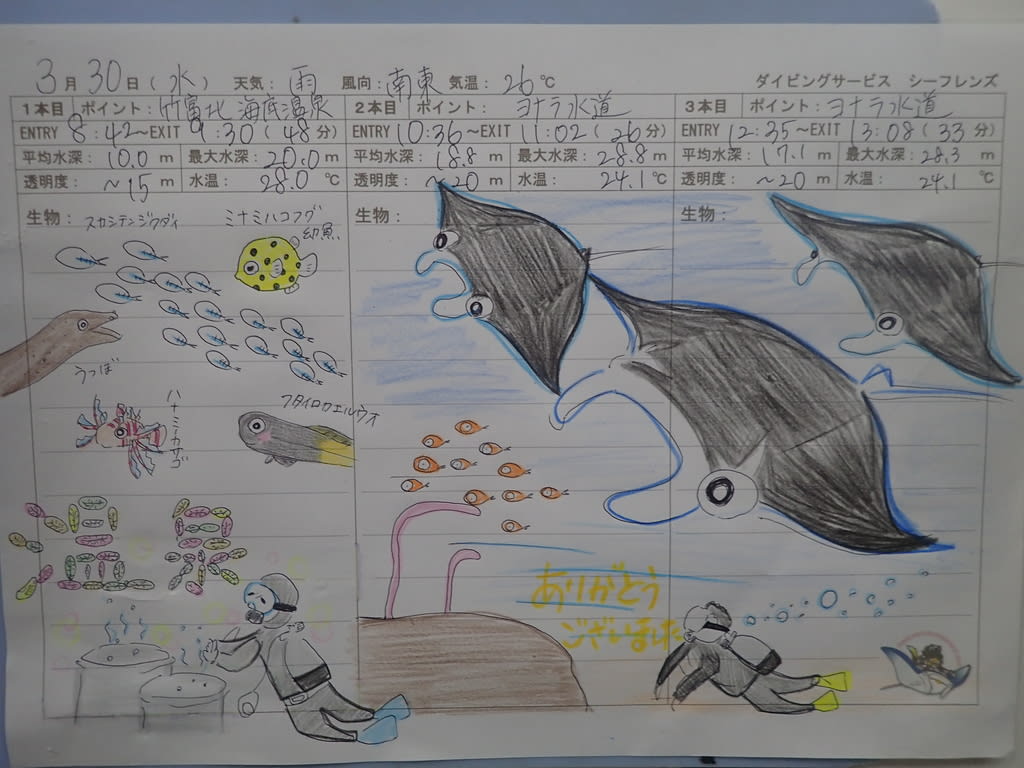 3月30日(水) 天気:雨 風向:南東 気温:26℃ ダイビングサービス シーフレンズ
1本目 ポイント:竹富北 海底温泉
ENTRY 8:42~EXIT 9:30(48分)
平均水深:10.0m 最大水深:20.0m
透明度:~15m 水温:28.0℃
生物:
スカシテンジクダイ
ミナミハコフグ
幼魚
うつぼ
ハナミノカサゴ
フタイロカエルウオ
温泉
2本目 ポイント:ヨナラ水道
ENTRY 10:36~EXIT 11:02(26分)
平均水深:18.8m 最大水深:28.8m
透明度:~20m 水温:24.1℃
生物:
ありがとう
ございました
3本目 ポイント:ヨナラ水道
ENTRY 12:35~EXIT 13:08(33分)
平均水深:17.1m 最大水深:28.3m
透明度:~20m 水温:24.1℃
生物: